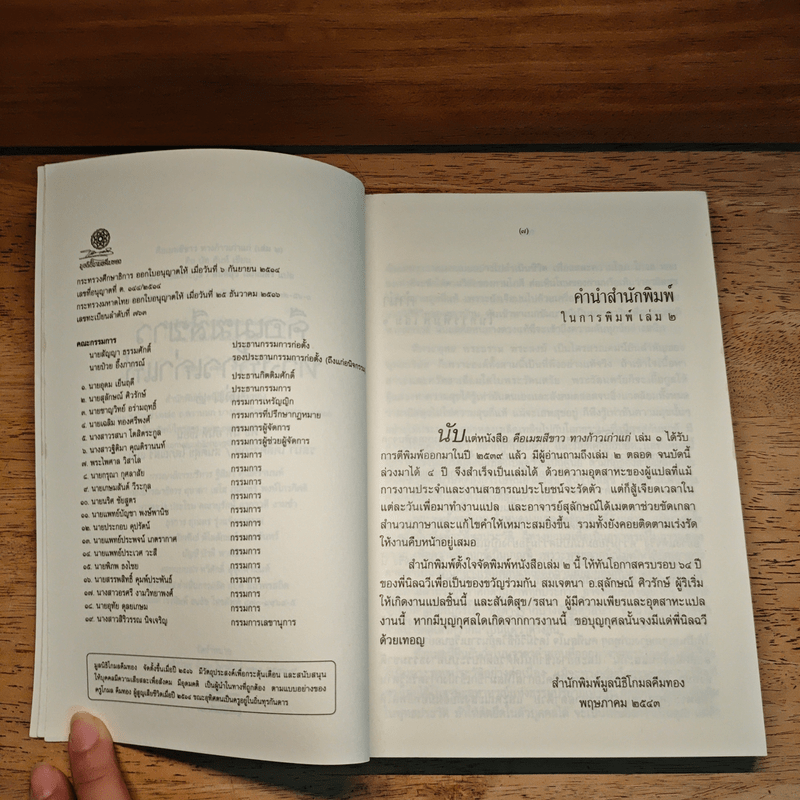 มูลนิธิโกมลคีมทอง
กระทรวงศึกษาธิการ ออกใบอนุญาตให้ เมื่อวันที่ ๖ กันยายน ๒๕๑๔
เลขที่อนุญาตที่ ต. ๑๔๔/๒๕๑๔
กระทรวงมหาดไทย ออกใบอนุญาตให้ เมื่อวันที่ ๒๕ ธันวาคม ๒๕๑๖
เลขทะเบียนลำดับที่ ๗๖๓
คณะกรรมการ
นายสัญญา ธรรมศักดิ์ ประธานกรรมการก่อตั้ง
นายป๋วย อึ๊งภากรณ์ รองประธานกรรมการก่อตั้ง (ถึงแก่อนิจกรรม)
๑. นายอุดม เย็นฤดี ประธานกิตติมศักดิ์
๒. นายสุลักษณ์ ศิวรักษ์ ประธานกรรมการ
๓. นายชาญวิทย์ อร่ามฤทธิ์ กรรมการเหรัญญิก
๔. นายเฉลิม ทองศรีพงศ์ กรรมการที่ปรึกษากฎหมาย
๕. นางสาวรสนา โตสิตระกูล กรรมการผู้จัดการ
๖. นางสาวฐิติมา คุณติรานนท์ กรรมการผู้ช่วยผู้จัดการ
๗. พระไพศาล วิสาโล กรรมการ
๘. นายกรุณา กุศลาสัย กรรมการ
๙. นายเกษมสันต์ วีระกุล กรรมการ
๑๐. นายนริศ ชัยสูตร กรรมการ
๑๑. นายแพทย์บัญชา พงษ์พานิช กรรมการ
๑๒. นายประกอบ คุปรัตน์ กรรมการ
๑๓. นายแพทย์ประพจน์ เภตรากาศ กรรมการ
๑๔. นายแพทย์ประเวศ วะสี กรรมการ
๑๕. นายพิภพ ธงไชย กรรมการ
๑๖. นายสรรพสิทธิ์ คุมพ์ประพันธ์ กรรมการ
๑๗. นางสาวอรศรี งามวิทยาพงศ์ กรรมการ
๑๘. นายอุทัย ดุลยเกษม กรรมการ
๑๙. นางสาวสิริวรรณ นิจเจริญ กรรมการเลขานุการ
มูลนิธิโกมลคีมทอง จัดตั้งขึ้นเมื่อปี ๒๕๑๖ มีวัตถุประสงค์เพื่อกระตุ้นเตือน และสนับสนุน
ให้บุคคลมีความเสียสละเพื่อสังคม มีอุดมคติ เป็นผู้นำในทางที่ถูกต้อง ตามแบบอย่างของ
ครูโกมล คีมทอง ผู้สูญเสียชีวิตเมื่อปี ๒๕๑๔ ขณะอุทิศตนเป็นครูอยู่ในถิ่นทุรกันดาร
(๗)
คำนำสำนักพิมพ์
ในการพิมพ์ เล่ม ๒
นับแต่หนังสือ คือเมฆสีขาว ทางก้าวเก่าแก่ เล่ม ๑ ได้รับ
การตีพิมพ์ออกมาในปี ๒๕๓๙ แล้ว มีผู้อ่านถามถึงเล่ม ๒ ตลอด จนบัดนี้
ล่วงมาได้ ๔ ปี จึงสำเร็จเป็นเล่มได้ ด้วยความอุตสาหะของผู้แปลที่แม้
การงานประจำและงานสาธารณประโยชน์จะรัดตัว แต่ก็สู้เจียดเวลาใน
แต่ละวันเพื่อมาทำงานแปล และอาจารย์สุลักษณ์ได้เมตตาช่วยขัดเกลา
สำนวนภาษาและแก้ไขคำให้เหมาะสมยิ่งขึ้น รวมทั้งยังคอยติดตามเร่งรัด
ให้งานคืบหน้าอยู่เสมอ
สำนักพิมพ์ตั้งใจจัดพิมพ์หนังสือเล่ม ๒ นี้ ให้ทันโอกาสครบรอบ ๖๔ ปี
ของพี่นิลฉวีเพื่อเป็นของขวัญร่วมกัน สมเจตนา อ.สุลักษณ์ ศิวรักษ์ ผู้ริเริ่ม
ให้เกิดงานแปลชิ้นนี้ และสันติสุข/รสนา ผู้มีความเพียรและอุตสาหะแปล
งานนี้ หากมีบุญกุศลใดเกิดจากการงานนี้ ขอบุญกุศลนั้นจงมีแด่พี่นิลฉวี
ด้วยเทอญ
สำนักพิมพ์มูลนิธิโกมลคีมทอง
พฤษภาคม ๒๕๔๓